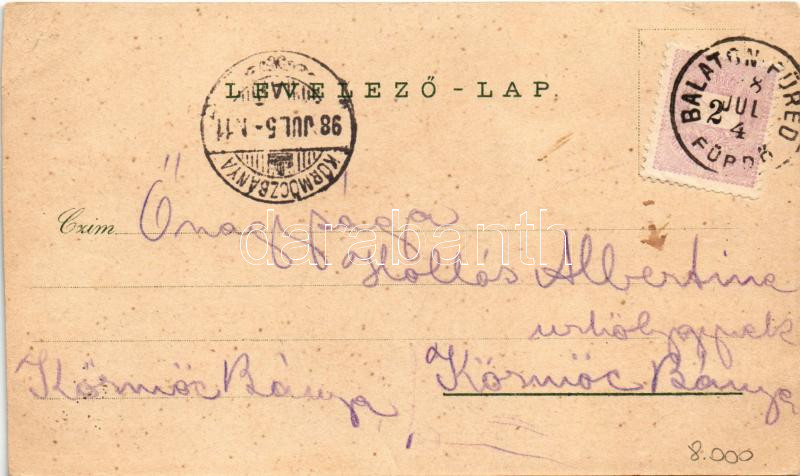 LEVELEZŐ-LAP
98 JUL 5
KÖRMÖCZBÁNYA
BALATON-FÜRED
8
JUL
4
FÜRDŐ
2
Czim
Őnagysága
Hollós Albertine
urhölgynek
Körmöc Bánya
Körmöc Bánya
darabanth
8.000